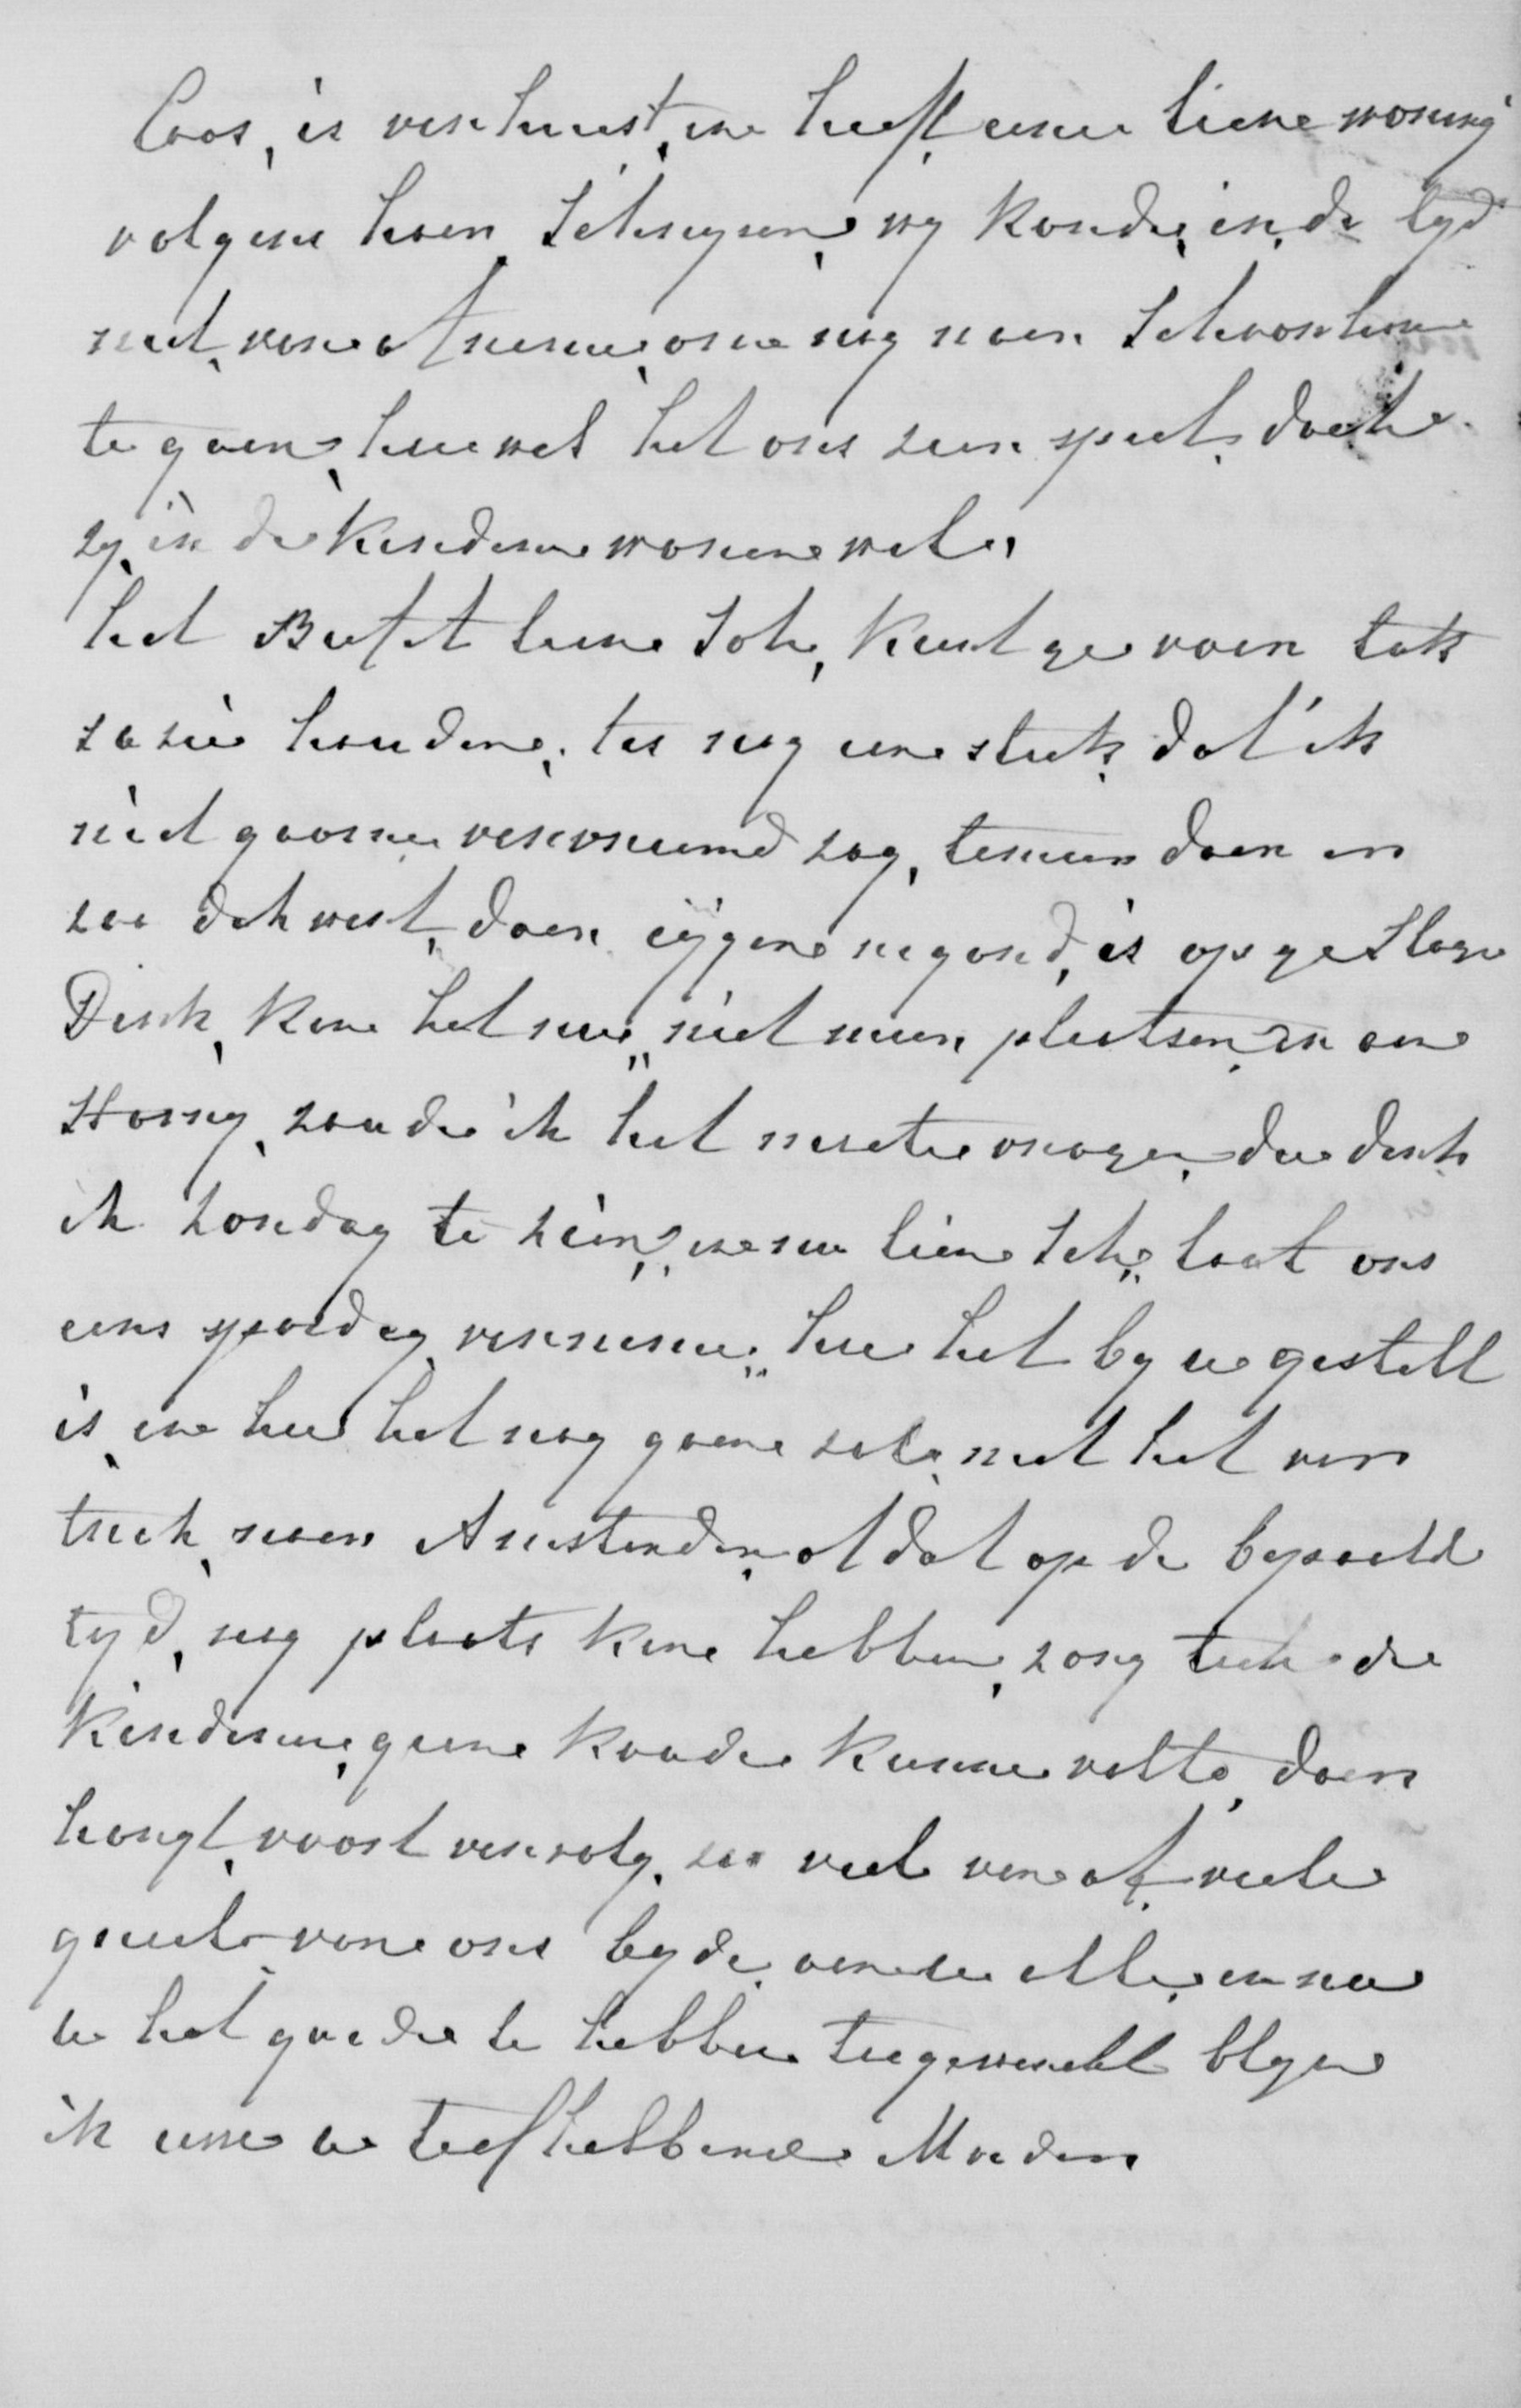 Coos, is verhuist, en heeft eene lieve woning
volgens haar schrijven, wy konde, in de tyd
niet, van afneme, om nog naar Schoonhove
te gaan, hoewel het ons zeer speet, doch
zy, en de kinderen waren wel,
het Bufet lieve Joh, kunt ge voor
houden, tis nog een stuk, dat ik
niet gaarne verornemd zag, temeer daar en
zoo Deh west, daar eygene is opgeslage
Derk, kan het nu, niet meer plaatsen, en aan
Harry, zoude ik het niet vragen, die denk
ik Zondag te zien, en nu lieve Joh, laat ons
eens spoedig vernemen, hoe het by u gestelt
is, en hoe het nog gaan zal, met het ver
trek, naar Amsterdam of dat op de bepaalde
tyd, nog plaats kan hebben, zorg toch de
kinderen, geen koude kunne vatte, daar
hangt, voort vervolg, zoo veel van af, veele
groete van ons byde, aan u alle, en nu
u het goede te hebben toegewenscht blyve
ik uwe u liefhebbende Moeder